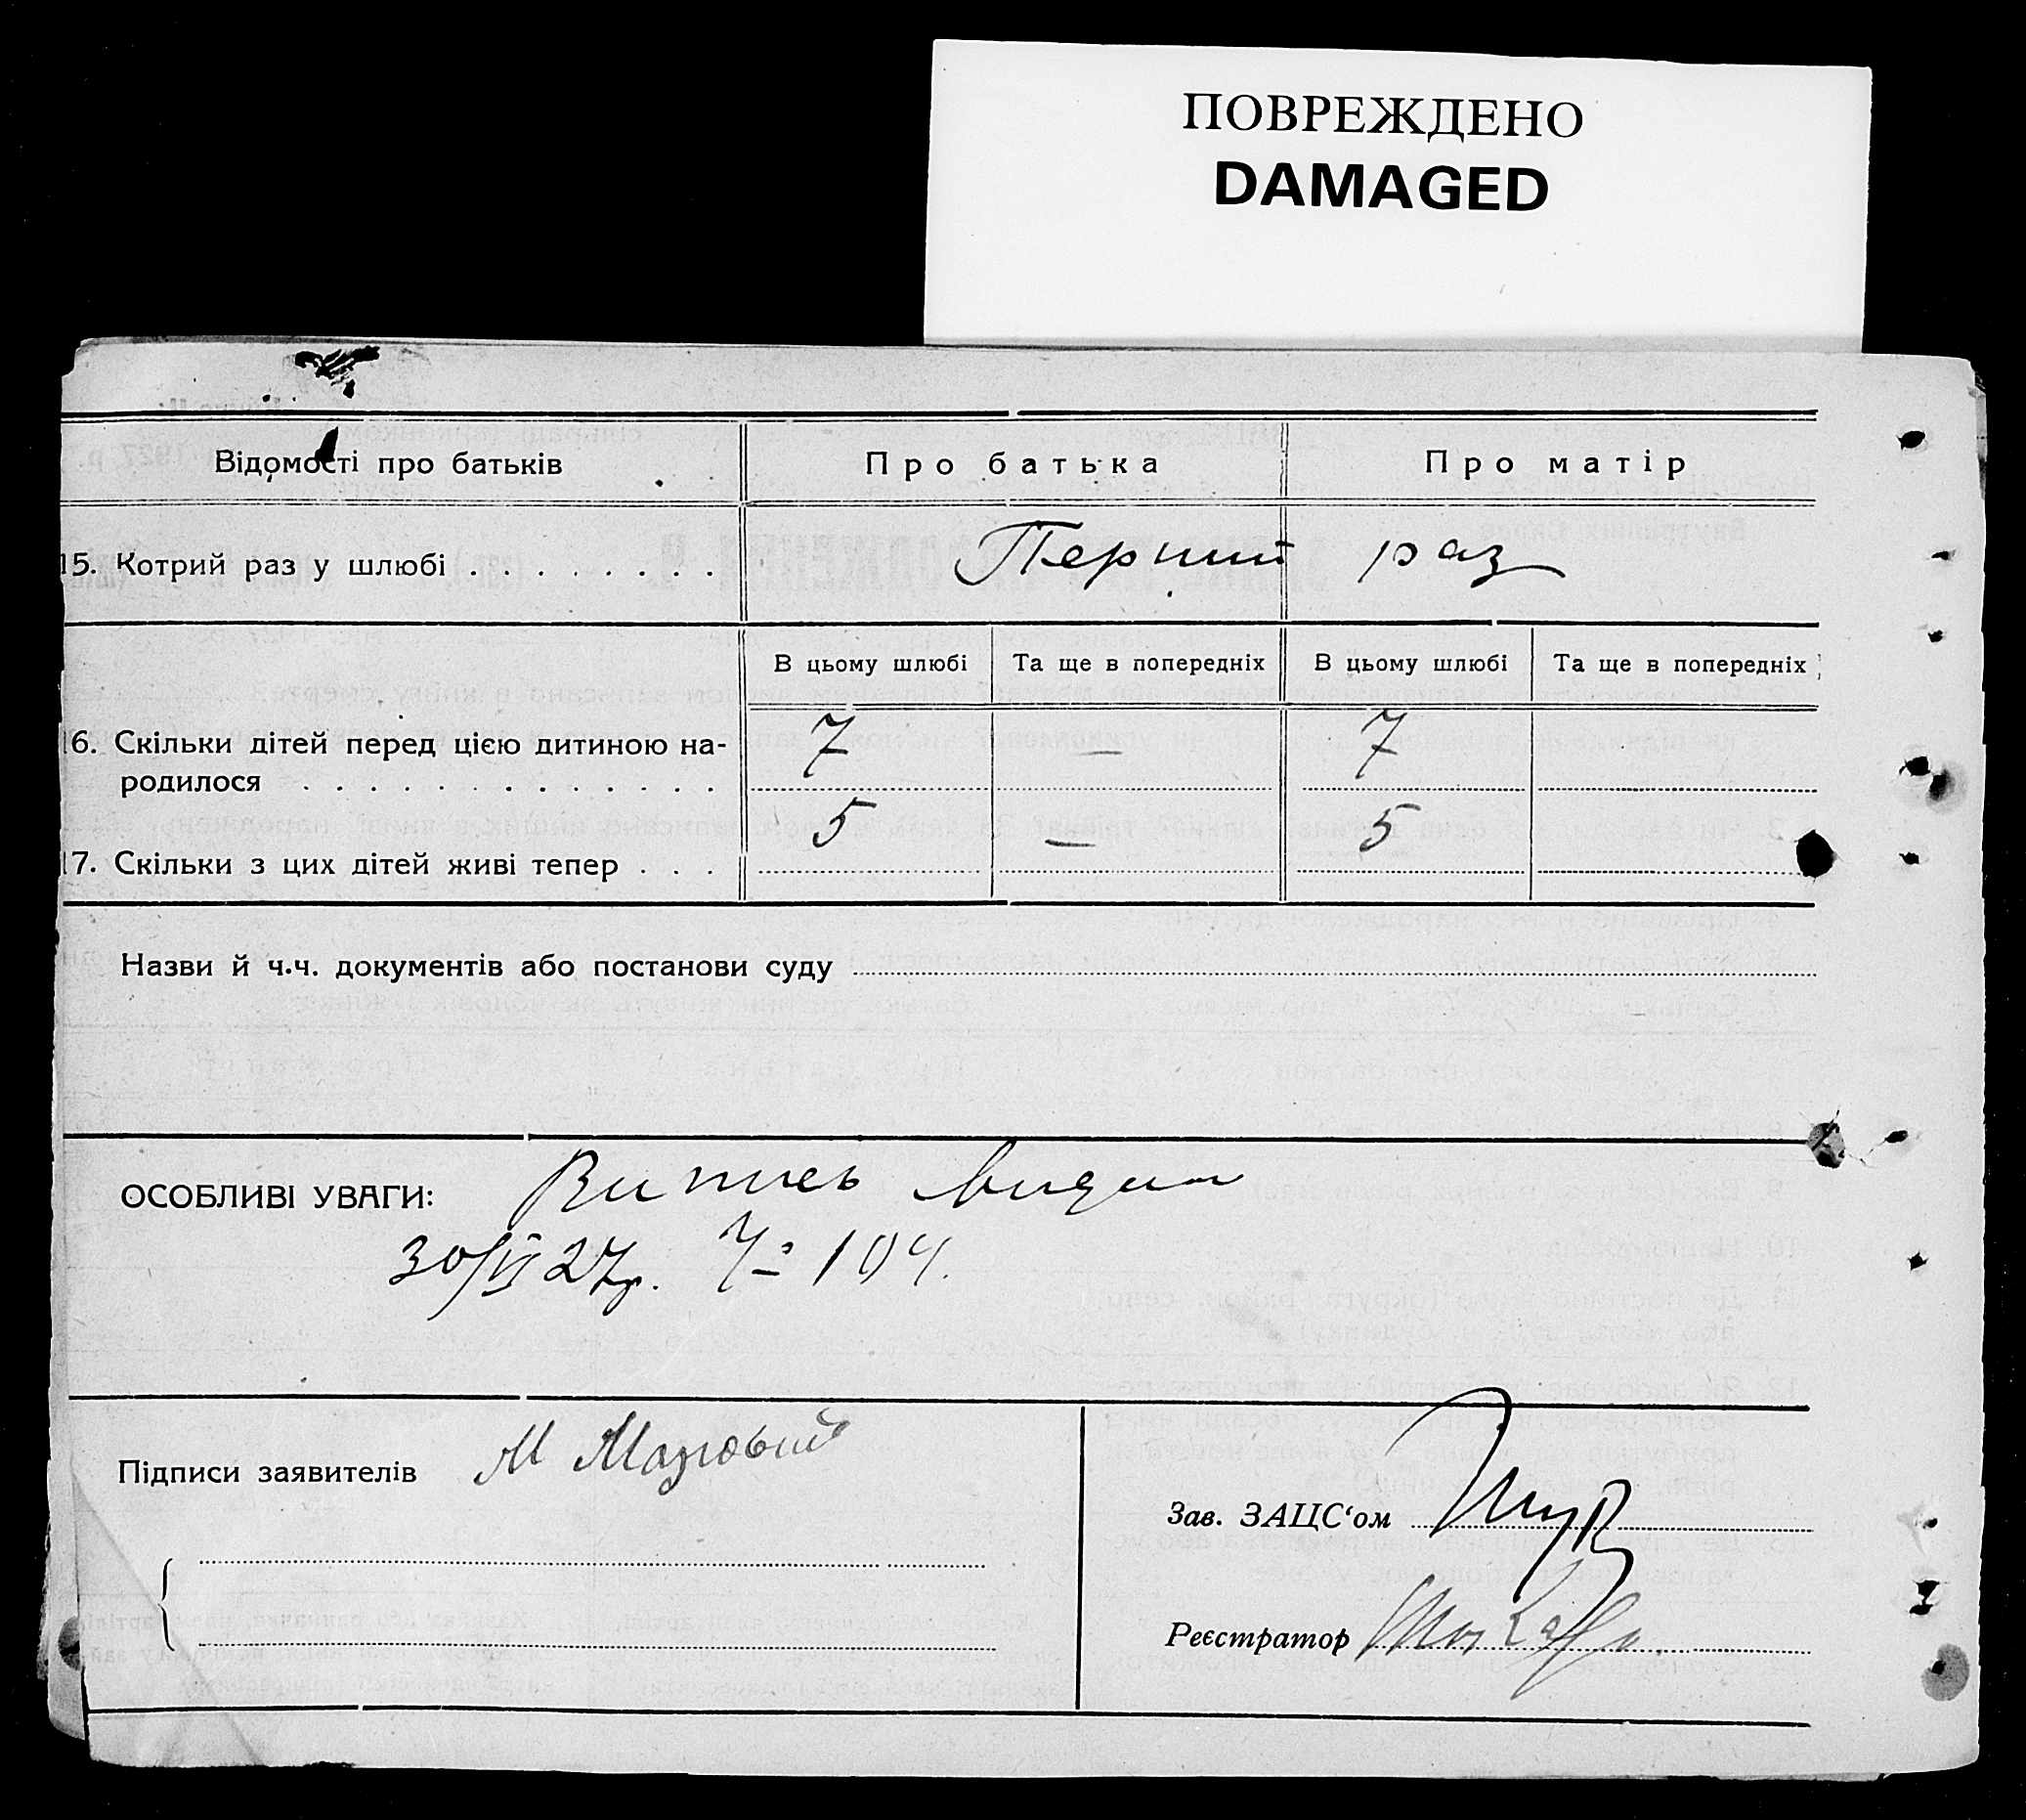 ПОВРЕЖДЕНО
DAMAGED
Відомості про батьків
Про батька
Про матір
15. Котрий раз у шлюбі
Перший раз
В цьому шлюбі
Та ще в попередніх
В цьому шлюбі
Та ще в попередніх
16. Скільки дітей перед цією дитиною на-
родилося
7 — 7
17. Скільки з цих дітей живі тепер
5 — 5
Назви й ч.ч. документів або постанови суду
ОСОБЛИВІ УВАГИ: Випись видан
30/VI 27р. 104.
Підписи заявителів М
Зав. ЗАЦС‘ом
Реєстратор